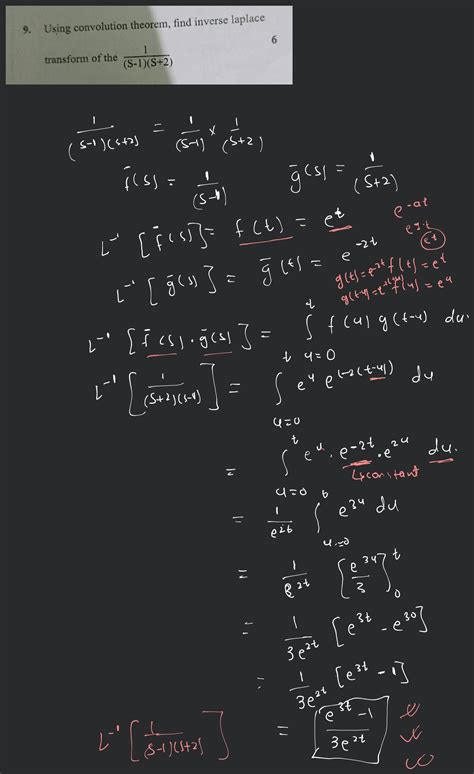 9. Using convolution theorem, find inverse laplace
6
transform of the 1/(S-1)(S+2)
1/(S-1)(S+2) = 1/(S-1) × 1/(S+2)
f̄(s) = 1/(S-1) ḡ(s) = 1/(S+2)
L⁻¹ [f̄(s)] = f(t) = e^t
e^-at
e^t
L⁻¹ [ḡ(s)] = ḡ(t) = e^-2t
g(t) = e^-2t f(t) = e^t
f(u) = e^u
L⁻¹ [f̄(s) . ḡ(s)] = ∫_{u=0}^{t} f(u) g(t-u) du.
L⁻¹ [1/(S+2)(S-1)] = ∫_{u=0}^{t} e^u e^(-2(t-u)) du
= ∫_{u=0}^{t} e^u . e^-2t . e^2u du.
↳constant
= 1/e^2t ∫_{u=0}^{t} e^3u du
= 1/e^2t [e^3u/3]_0^t
= 1/3e^2t [e^3t - e^30]
= 1/3e^2t [e^3t - 1]
L⁻¹ [1/(S-1)(S+2)] = e^3t - 1/3e^2t